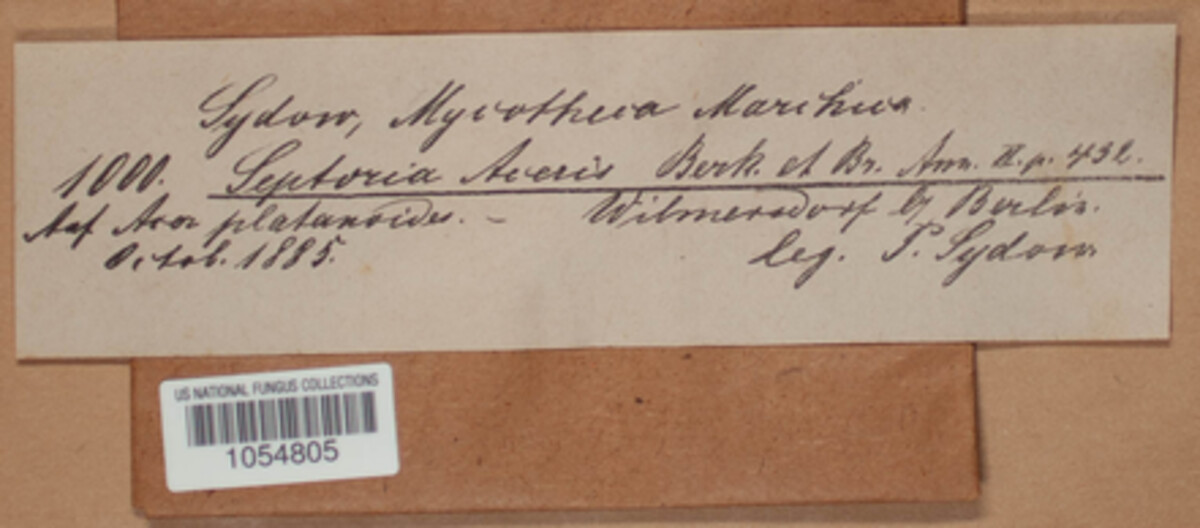 Sydow, Mycotheca Marchica.
1000. Septoria Aceris Berk. et Br. Ann. II. p. 432.
Auf Acer platanoides. - Wilmersdorf b/ Berlin.
Octob. 1885. leg. P. Sydow.
US NATIONAL FUNGUS COLLECTIONS
1054805